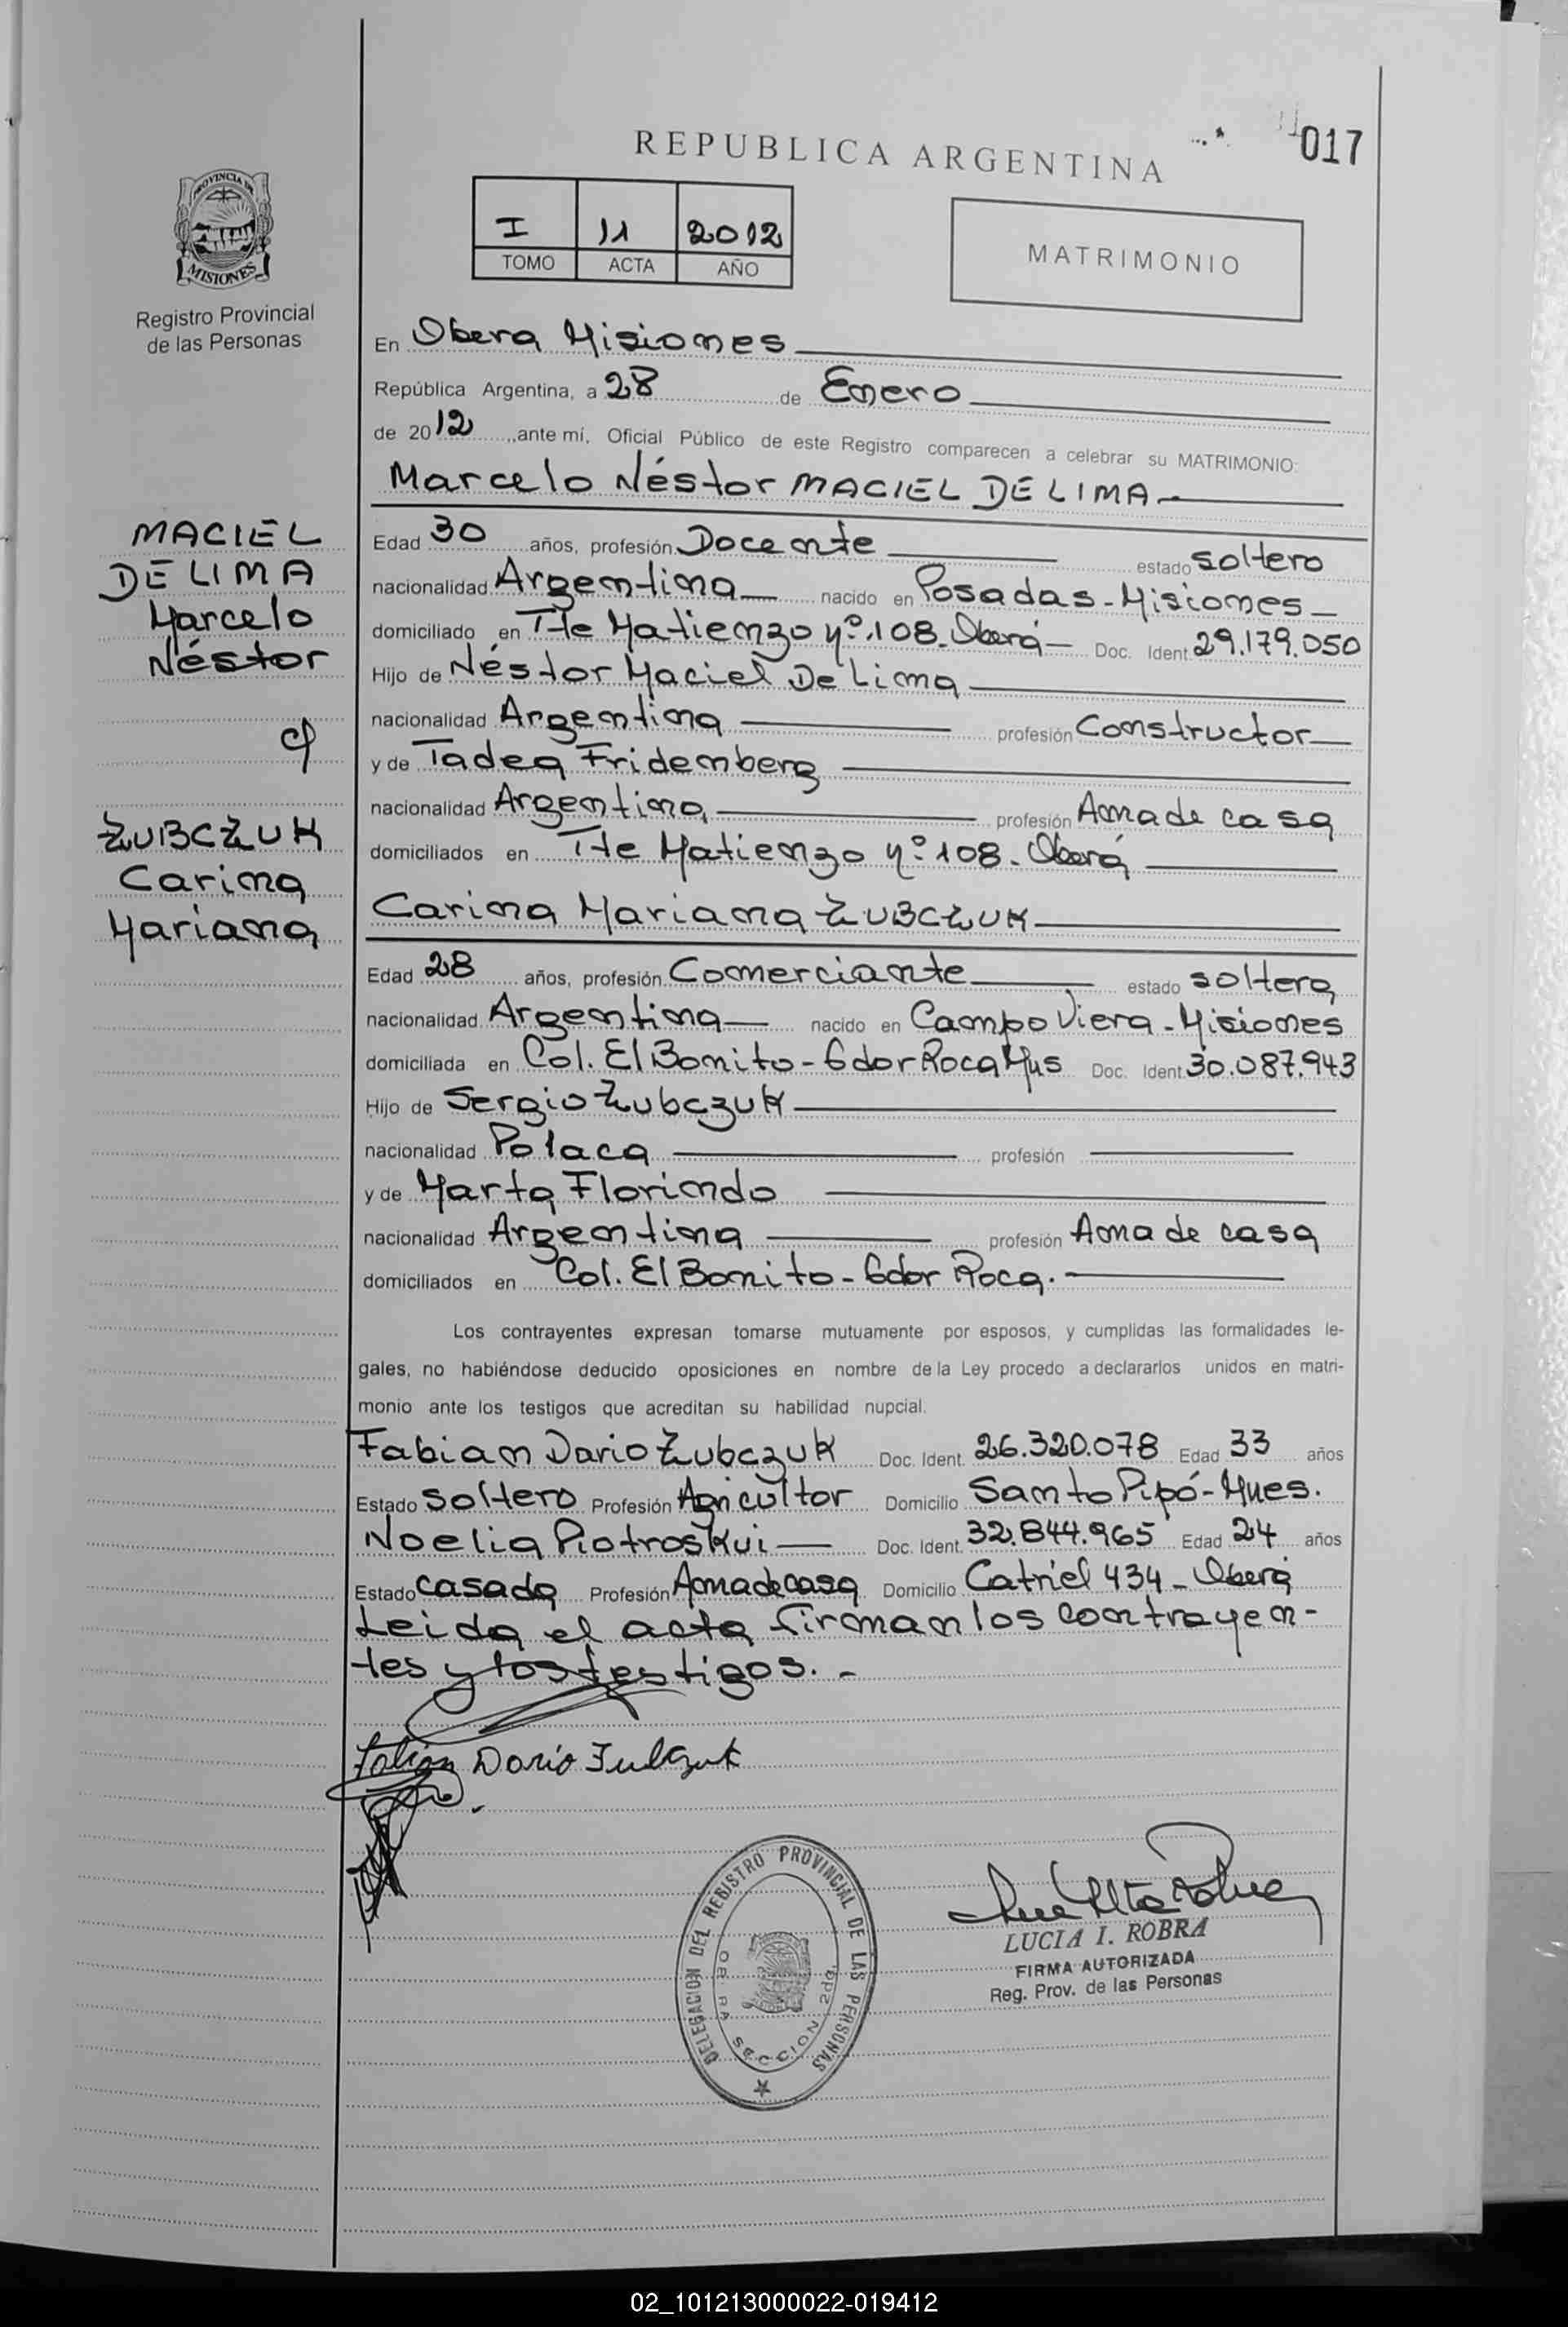 REPUBLICA ARGENTINA
017
PROVINCIA DE
MISIONES
Registro Provincial
de las Personas
I 11 2012
TOMO ACTA AÑO
MATRIMONIO
En Obera Misiones
República Argentina, a 28 de Enero
de 2012, ante mí, Oficial Público de este Registro comparecen a celebrar su MATRIMONIO:
Marcelo Néstor MACIEL DE LIMA
MACIEL
DE LIMA
Marcelo
Néstor
c/
ŻUBCŻUK
Carina
Mariana
Edad 30 años, profesión Docente estado soltero
nacionalidad Argentina nacido en Posadas - Misiones -
domiciliado en Tte Matienzo Nº 108. Oberá Doc. Ident 29.179.050
Hijo de Néstor Maciel De Lima
nacionalidad Argentina profesión Constructor
y de Tadea Fridemberg
nacionalidad Argentina profesión Ama de casa
domiciliados en Tte Matienzo Nº 108 - Oberá
Carina Mariana ŻUBCŻUK
Edad 28 años, profesión Comerciante estado soltera
nacionalidad Argentina nacido en Campo Viera - Misiones
domiciliada en Col. El Bonito - Gdor Roca Mns Doc. Ident 30.087.943
Hijo de Sergio Żubczuk
nacionalidad Polaca profesión
y de Marta Florindo
nacionalidad Argentina profesión Ama de casa
domiciliados en Col. El Bonito - Gdor Roca.
Los contrayentes expresan tomarse mutuamente por esposos, y cumplidas las formalidades le-
gales, no habiéndose deducido oposiciones en nombre de la Ley procedo a declararlos unidos en matri-
monio ante los testigos que acreditan su habilidad nupcial.
Fabian Dario Żubczuk Doc. Ident. 26.320.078 Edad 33 años
Estado soltero Profesión Agricultor Domicilio Santo Pipó - Mnes.
Noelia Piotroskui Doc. Ident. 32.844.965 Edad 24 años
Estado casada Profesión Ama de casa Domicilio Catriel 434 - Oberá
Leida el acta firman los contrayen-
tes y los testigos. -
Fabian Dario Zubczuk
DELEGACION DEL REGISTRO PROVINCIAL DE LAS PERSONAS
SECCION 2da.
LUCIA I. ROBRA
FIRMA AUTORIZADA
Reg. Prov. de las Personas
02_101213000022-019412